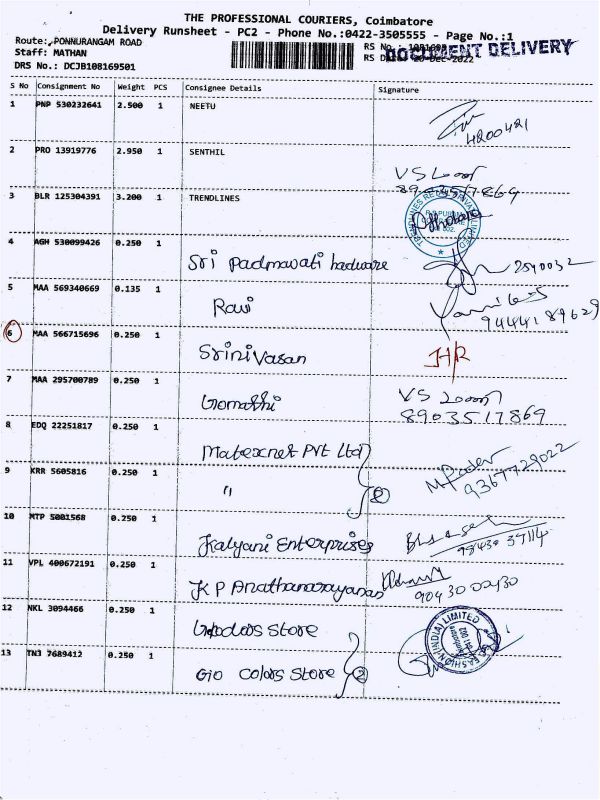 THE PROFESSIONAL COURIERS, Coimbatore
Delivery Runsheet - PC2 - Phone No.:0422-3505555 - Page No.:1
Route: PONNURANGAM ROAD
Staff: MATHAN
DRS No.: DCJB108169501
RS No
DOCUMENT DELIVERY
RS D
20-Dec-2022
S No Consignment No Weight PCS Consignee Details Signature
1 PNP 530232641 2.500 1 NEETU
4200421
2 PRO 13919776 2.950 1 SENTHIL
VS
8903517869
3 BLR 125304391 3.200 1 TRENDLINES
4 AGH 530099426 0.250 1 Sri Padmavati hadware 2590032
5 MAA 569340669 0.135 1 Ravi
9444189629
6 MAA 566715696 0.250 1 Srinivasan
7 MAA 295700789 0.250 1 Gomathi VS
8903517869
8 EDQ 22251817 0.250 1 Matexnet Pvt Ltd
9 KRR 5605816 0.250 1 " 2
9367729022
10 MTP 5001568 0.250 1 Kalyani Enterprises
11 VPL 400672191 0.250 1 K P Anathanarayanan
90430 00430
12 NKL 3094466 0.250 1 Store
FASHION (INDIA) LIMITED
13 TN3 7689412 0.250 1 Gio Colors Store 2